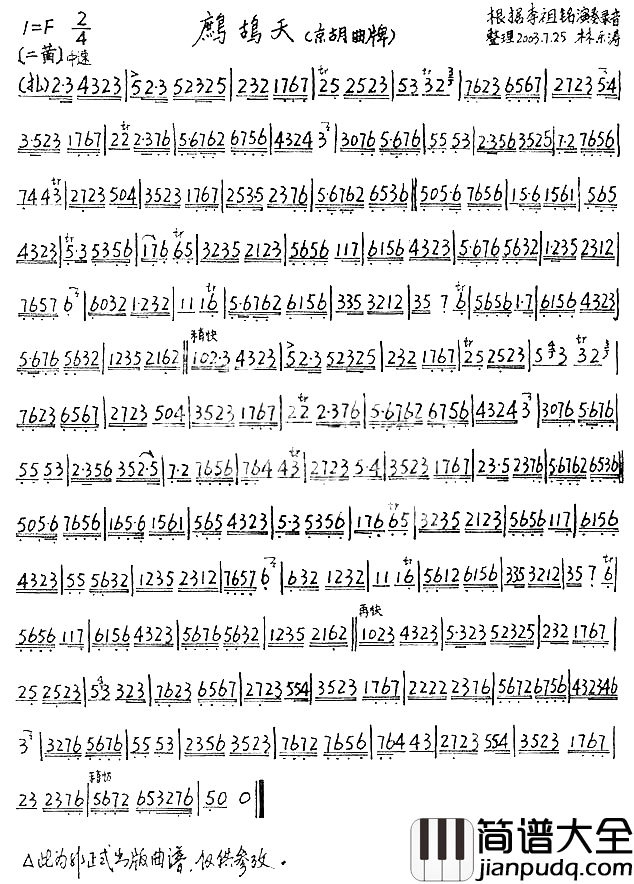 1=F 2/4 鹧鸪天(京胡曲牌) 根据李祖铭演奏录音
[二黄]中速 整理2003.7.25 林东涛
(扎)2·3 4323|52·3 52325|232 1767|tr25 2523|53 tr32|7623 6567|2723 54|
3·523 1767|2tr2 2·376|5·6762 6756|4324 3|3076 5·676|55 53|2·356 3525|7·2 7656|
744tr3|2723 504|3523 1767|2535 2376|5·6762 6536‖505·6 7656|15·6 1561|565
4323|tr5·3 5356|176 tr65|3235 2123|5656 117|6156 4323|5·676 5632|1·235 2312|
7657 6|6032 1·232|11 1tr6|5·6762 6156|335 3212|35 7 tr6|5656 1·7|6156 4323|
5·676 5632|1235 2162‖稍快102·3 4323|52·3 52325|232 1767|tr25 2523|5 43 tr32|
7623 6567|2723 504|3523 1767|2tr2 2·376|5·6762 6756|4324 3|3076 5676|
55 53|2·356 352·5|7·2 7656|764 4tr3|2723 5·4|3523 1767|23·5 2376|5·6762 6536‖
505·6 7656|165·6 1561|565 4323|5·3 5356|176 tr65|3235 2123|5656 117|6156
4323|55 5632|1235 2312|7657 6|632 1232|11 1tr6|5612 6156|335 3212|35 7 tr6|
5656 117|6156 4323|5676 5632|1235 2162‖再快1023 4323|5·323 52325|232 1767|
25 2523|53 323|7623 6567|2723 554|3523 1767|2222 2376|5672 6756|432346
3|3276 5676|55 53|2356 3523|7672 7656|764 43|2723 554|3523 1767|
23 2376|稍切5672 653276|50 0‖
△此为非正式出版曲谱,仅供参考。
简谱大全
jianpudq.com